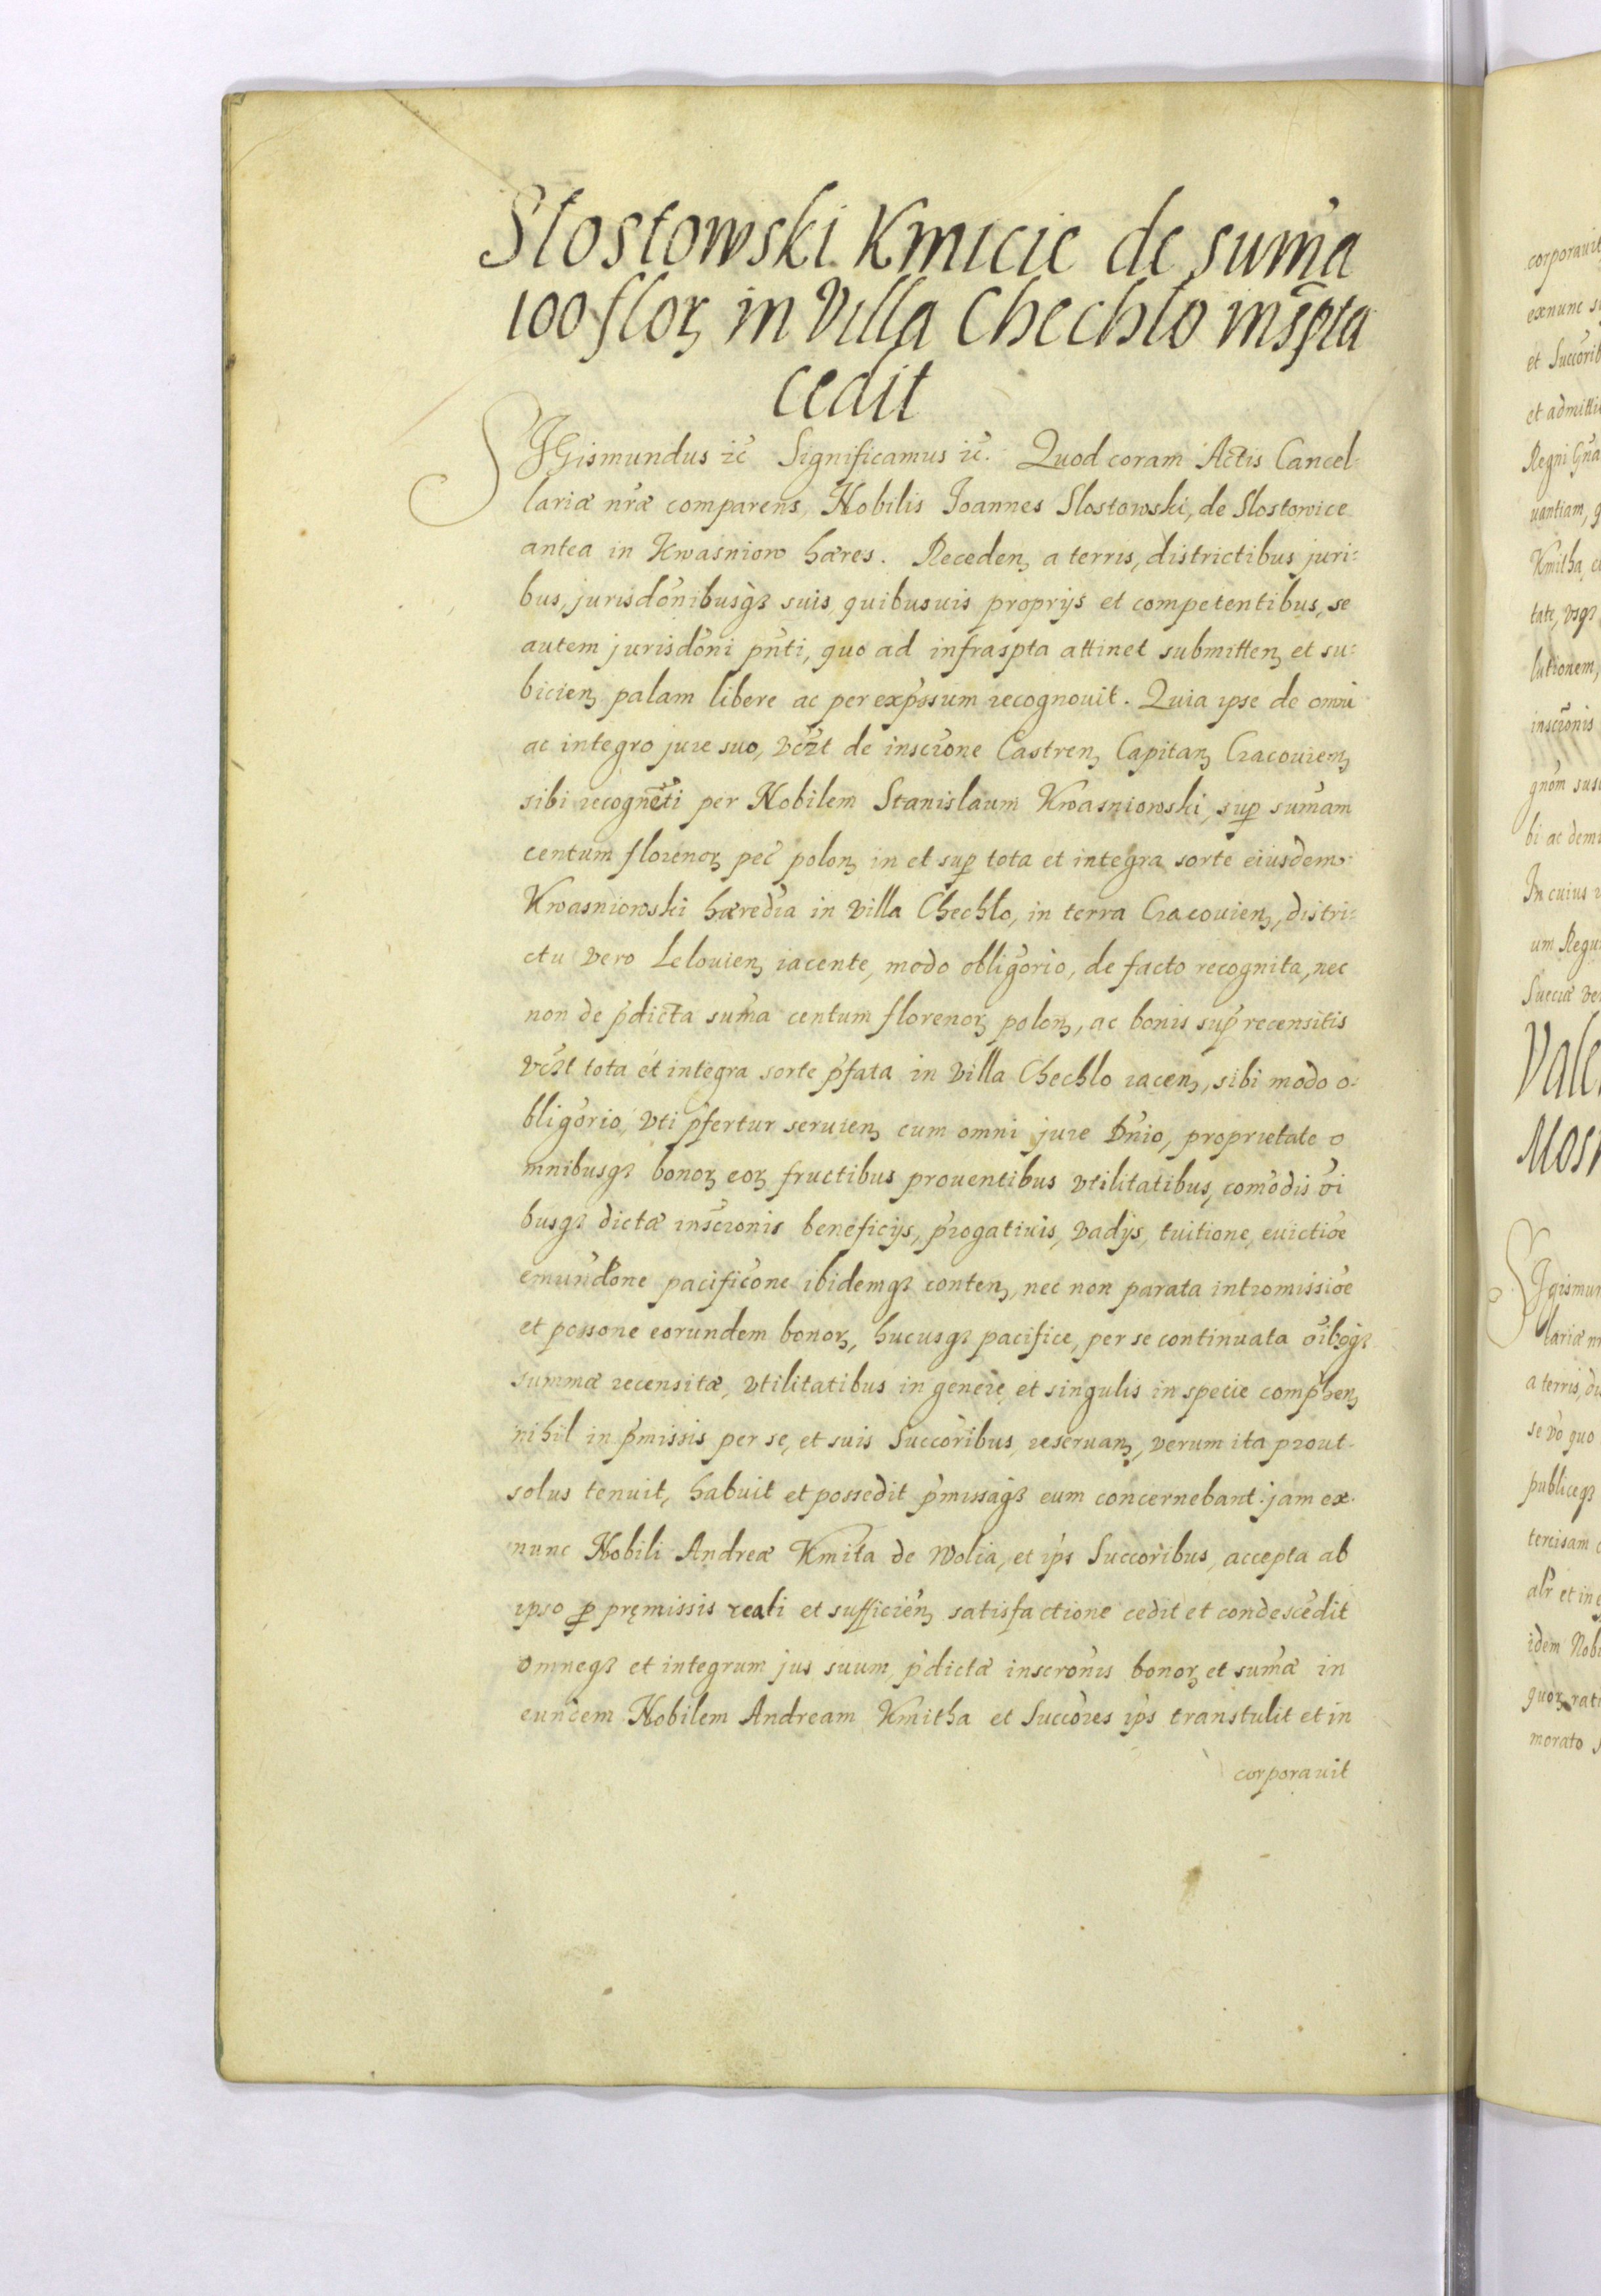 Slostowski Kmicie de sum̃a
100 floꝝ in Villa Chechlo insp̃ta
cedit
SIGismundus ꝛc̃ Significamus ꝛc̃. Quod coram Actis Cancel⸗
lariæ nr̃æ comparens, Nobilis Joannes Slostowski, de Slostowice
antea in Kwasniow hæres. Recedenʒ a terris, districtibus, juri⸗
bus, jurisdõnibusqꝫ suis, quibusuis proprijs et competentibus, se
autem jurisdõni pñti, quo ad infraspta attinet submittenʒ et su⸗
bicienʒ palam libere ac per exp̃ssum recognouit. Quia ipse de omni
ac integro jure suo, vc̃ꝫt de inscr̃one Castrenʒ Capitanʒ Cracouienʒ
sibi recogñeti per Nobilem Stanislaum Kwasniowski, suꝑ sum̃am
centum florenoꝝ pec̃ polonʒ in et suꝑ tota et integra sorte eiusdem
Kwasniowski hæredr̃ia in villa Chechlo, in terra Cracouienʒ, distri⸗
ctu vero Lelouienʒ iacente, modo oblig̃orio, de facto recognita, nec
non de p̃dicta sum̃a centum florenoꝝ polonʒ, ac bonis sup̃ recensitis
vc̃ꝫt tota et integra sorte p̃fata in villa Chechlo iacenʒ, sibi modo o⸗
blig̃orio, vti p̃fertur seruienʒ cum omni jure Dñio, proprietate o
mnibusqꝫ bonoꝝ eoꝝ fructibus prouentibus vtilitatibus, com̃odis õi
busqꝫ dictæ inscr̃onis beneficijs, p̃rogatiuis, vadijs, tuitione, euictiõe
emund̃one pacific̃one ibidemqꝫ contenʒ, nec non parata intromissiõe
et possone eorundem bonoꝝ, hucusqꝫ pacifice, per se continuata õibqꝫ
summæ recensitæ, vtilitatibus in genere, et singulis in specie comp̃henʒ
nihil in p̃missis per se, et suis Succõribus reseruanʒ, verum ita prout
solus tenuit, habuit et possedit p̃missaqꝫ eum concernebant. jam ex
nunc Nobili Andreæ Kmita de Wolia, et ip̃s Succõribus, accepta ab
ipso ꝓ pręmissis reali et sufficienʒ satisfactione cedit et condescẽdit
omneqꝫ et integrum jus suum, p̃dictæ inscrõnis bonoꝝ et sum̃æ in
eundem Nobilem Andream Kmitha et Succõres ip̃s transtulit et in
corporauit